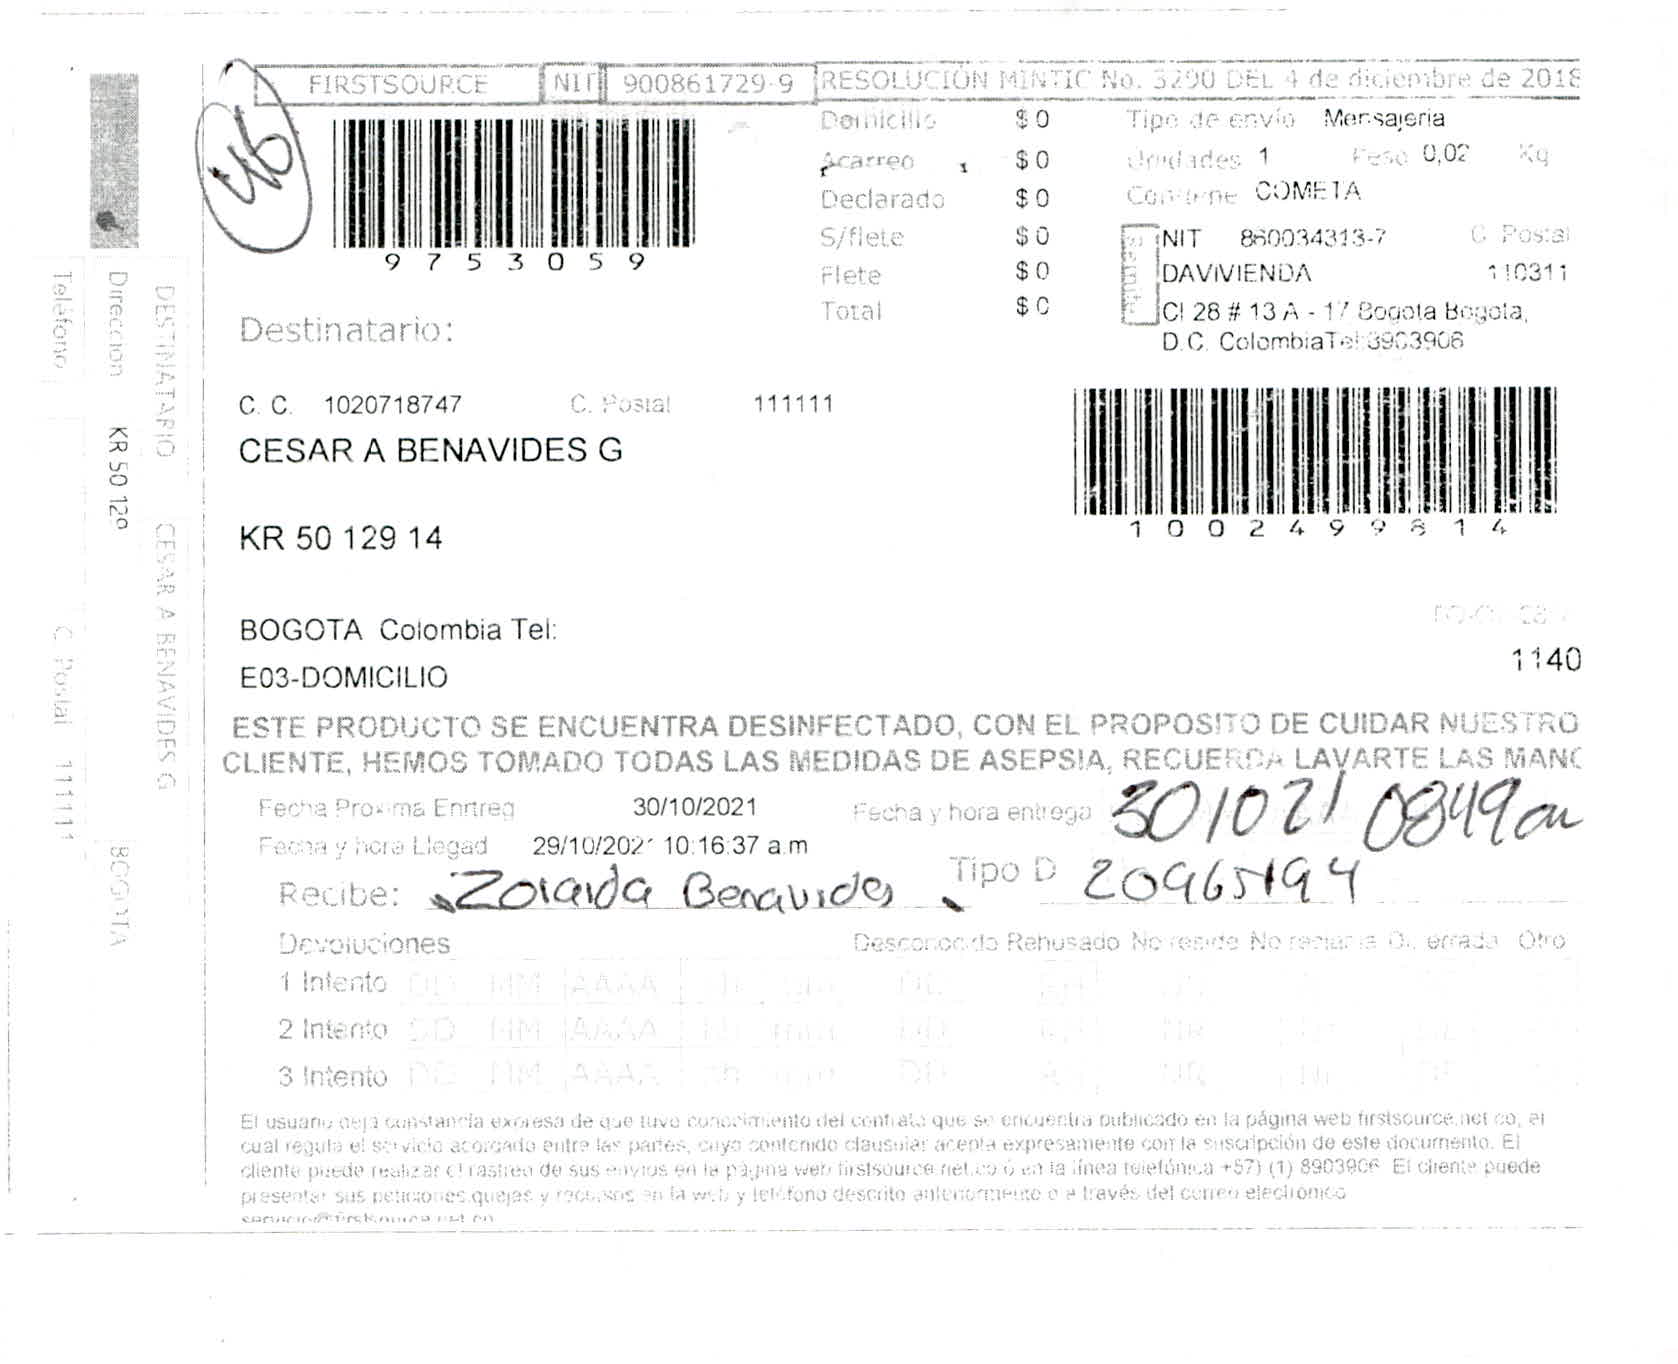 46
FIRSTSOURCE NIT 900861729-9 RESOLUCIÓN MINTIC No. 3290 DEL 4 de diciembre de 2018
9753059
Domicilio $0
Acarreo $0
Declarado $0
S/flete $0
Flete $0
Total $0
Tipo de envío Mensajeria
Unidades 1 Peso 0,02 Kg
Contiene COMETA
Remite
NIT 860034313-7 C Postal
DAVIVIENDA 110311
Cl 28 # 13 A - 17 Bogota Bogota,
D.C. ColombiaTel:8903906
Destinatario:
C. C. 1020718747 C. Postal 111111
CESAR A BENAVIDES G
1002499814
KR 50 129 14
BOGOTA Colombia Tel:
1140
E03-DOMICILIO
ESTE PRODUCTO SE ENCUENTRA DESINFECTADO, CON EL PROPOSITO DE CUIDAR NUESTRO
CLIENTE, HEMOS TOMADO TODAS LAS MEDIDAS DE ASEPSIA, RECUERDA LAVARTE LAS MANO
Fecha Proxima Enrtreg 30/10/2021 Fecha y hora entrega 30/10 21 0849am
Fecha y hora Llegad 29/10/2021 10:16:37 a.m
Recibe: Zoraida Benavides Tipo D 20965194
Devoluciones Desconocido Rehusado No reside No reclama Di. errada Otro
1 Intento DD MM AAAA hh mm DD RH
2 Intento DD MM AAAA hh mm DD RH NR NR DE
3 Intento DD MM AAAA hh mm DD RH NR NR DE
El usuario deja constancia expresa de que tuvo conocimiento del contrato que se encuentra publicado en la página web firstsource.net.co, el
cual regula el servicio acordado entre las partes, cuyo contenido clausular acepta expresamente con la suscripción de este documento. El
cliente puede realizar el rastreo de sus envios en la página web firstsource.net.co ó en la línea telefónica +57) (1) 8903906 El cliente puede
presentar sus peticiones,quejas y recursos en la web y teléfono descrito anteriormente o a través del correo electrónico
servicio@firstsource.net.co
DESTINATARIO CESAR A BENAVIDES G
Direccion KR 50 129 BOGOTA
Teléfono C Postal 111111